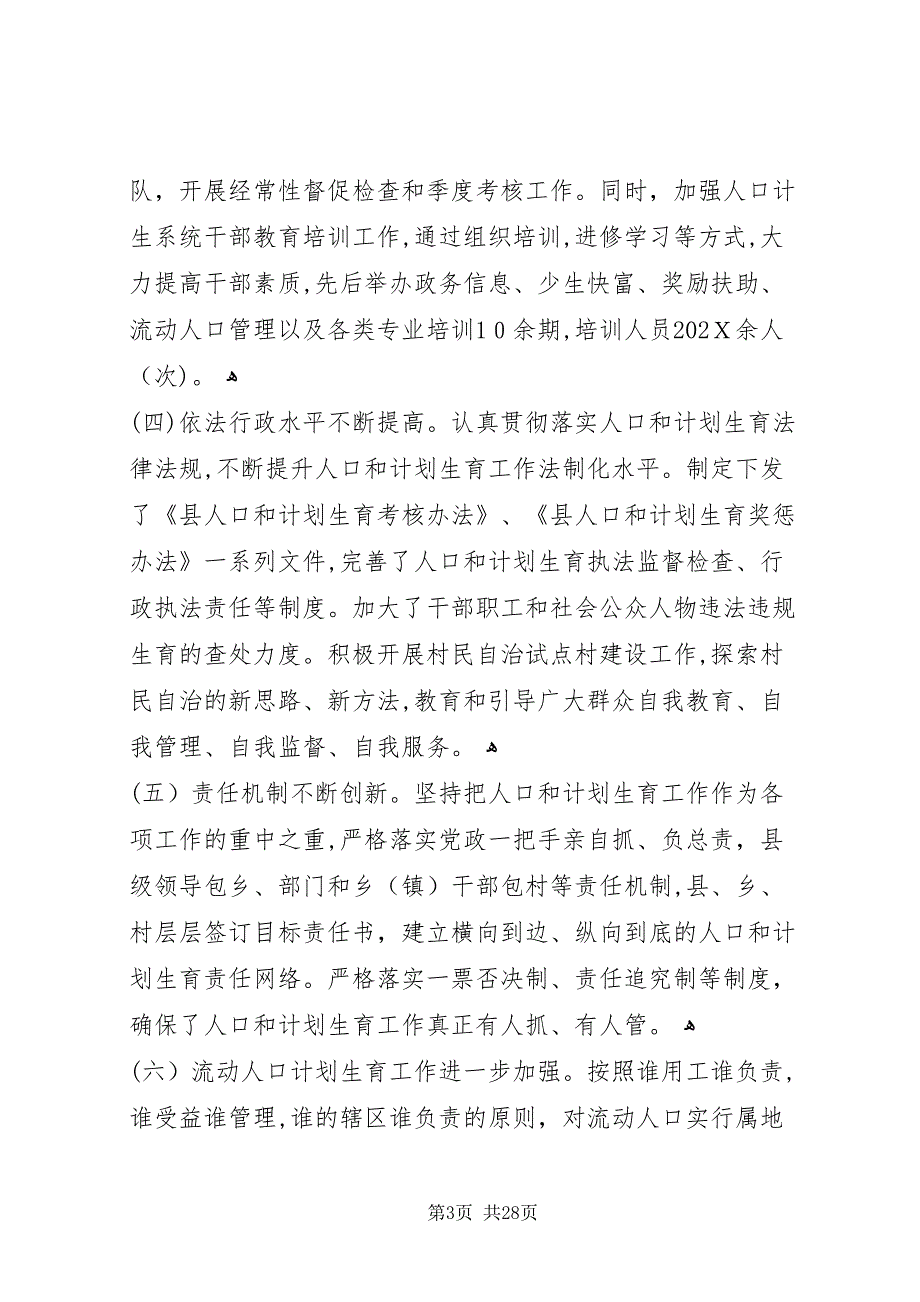 队，开展经常性督促检查和季度考核工作。同时，加强人口计
生系统干部教育培训工作,通过组织培训,进修学习等方式,大
力提高干部素质,先后举办政务信息、少生快富、奖励扶助、
流动人口管理以及各类专业培训1０余期,培训人员202X余人
（次)。 ﻫ
(四)依法行政水平不断提高。认真贯彻落实人口和计划生育法
律法规,不断提升人口和计划生育工作法制化水平。制定下发
了《县人口和计划生育考核办法》、《县人口和计划生育奖惩
办法》一系列文件,完善了人口和计划生育执法监督检查、行
政执法责任等制度。加大了干部职工和社会公众人物违法违规
生育的查处力度。积极开展村民自治试点村建设工作,探索村
民自治的新思路、新方法,教育和引导广大群众自我教育、自
我管理、自我监督、自我服务。 ﻫ
(五）责任机制不断创新。坚持把人口和计划生育工作作为各
项工作的重中之重,严格落实党政一把手亲自抓、负总责，县
级领导包乡、部门和乡（镇）干部包村等责任机制,县、乡、
村层层签订目标责任书，建立横向到边、纵向到底的人口和计
划生育责任网络。严格落实一票否决制、责任追究制等制度，
确保了人口和计划生育工作真正有人抓、有人管。 ﻫ
(六）流动人口计划生育工作进一步加强。按照谁用工谁负责,
谁受益谁管理,谁的辖区谁负责的原则，对流动人口实行属地
第3页 共28页